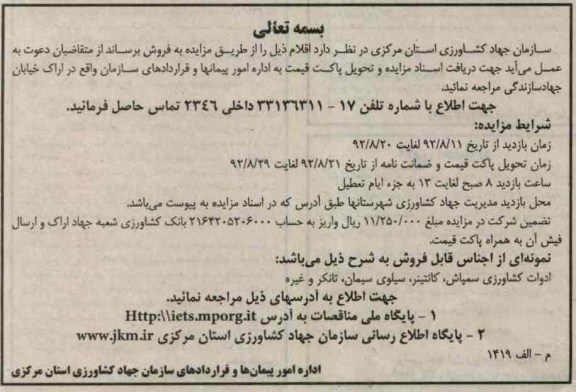 بسمه تعالی
سازمان جهاد کشاورزی استان مرکزی در نظر دارد اقلام ذیل را از طریق مزایده به فروش برساند از متقاضیان دعوت به
عمل می‌آید جهت دریافت اسناد مزایده و تحویل پاکت قیمت به اداره امور پیمانها و قراردادهای سازمان واقع در اراک خیابان
جهادسازندگی مراجعه نمائید.
جهت اطلاع با شماره تلفن ۱۷ - ۳۳۱۳۶۳۱۱ داخلی ۲۳۴۶ تماس حاصل فرمائید.
شرایط مزایده:
زمان بازدید از تاریخ ۹۲/۸/۱۱ لغایت ۹۲/۸/۲۰
زمان تحویل پاکت قیمت و ضمانت نامه از تاریخ ۹۲/۸/۲۱ لغایت ۹۲/۸/۲۹
ساعت بازدید ۸ صبح لغایت ۱۳ به جزء ایام تعطیل
محل بازدید مدیریت جهاد کشاورزی شهرستانها طبق آدرس که در اسناد مزایده به پیوست می‌باشد.
تضمین شرکت در مزایده مبلغ ۱۱/۲۵۰/۰۰۰ ریال واریز به حساب ۲۱۶۴۲۰۵۲۰۶۰۰۰ بانک کشاورزی شعبه جهاد اراک و ارسال
فیش آن به همراه پاکت قیمت.
نمونه‌ای از اجناس قابل فروش به شرح ذیل می‌باشد:
ادوات کشاورزی سمپاش، کانتینر، سیلوی سیمان، تانکر و غیره
جهت اطلاع به آدرسهای ذیل مراجعه نمائید.
۱ - پایگاه ملی مناقصات به آدرس Http:\\iets.mporg.it
۲ - پایگاه اطلاع رسانی سازمان جهاد کشاورزی استان مرکزی www.jkm.ir
م - الف ۱۴۱۹
اداره امور پیمان‌ها و قراردادهای سازمان جهاد کشاورزی استان مرکزی